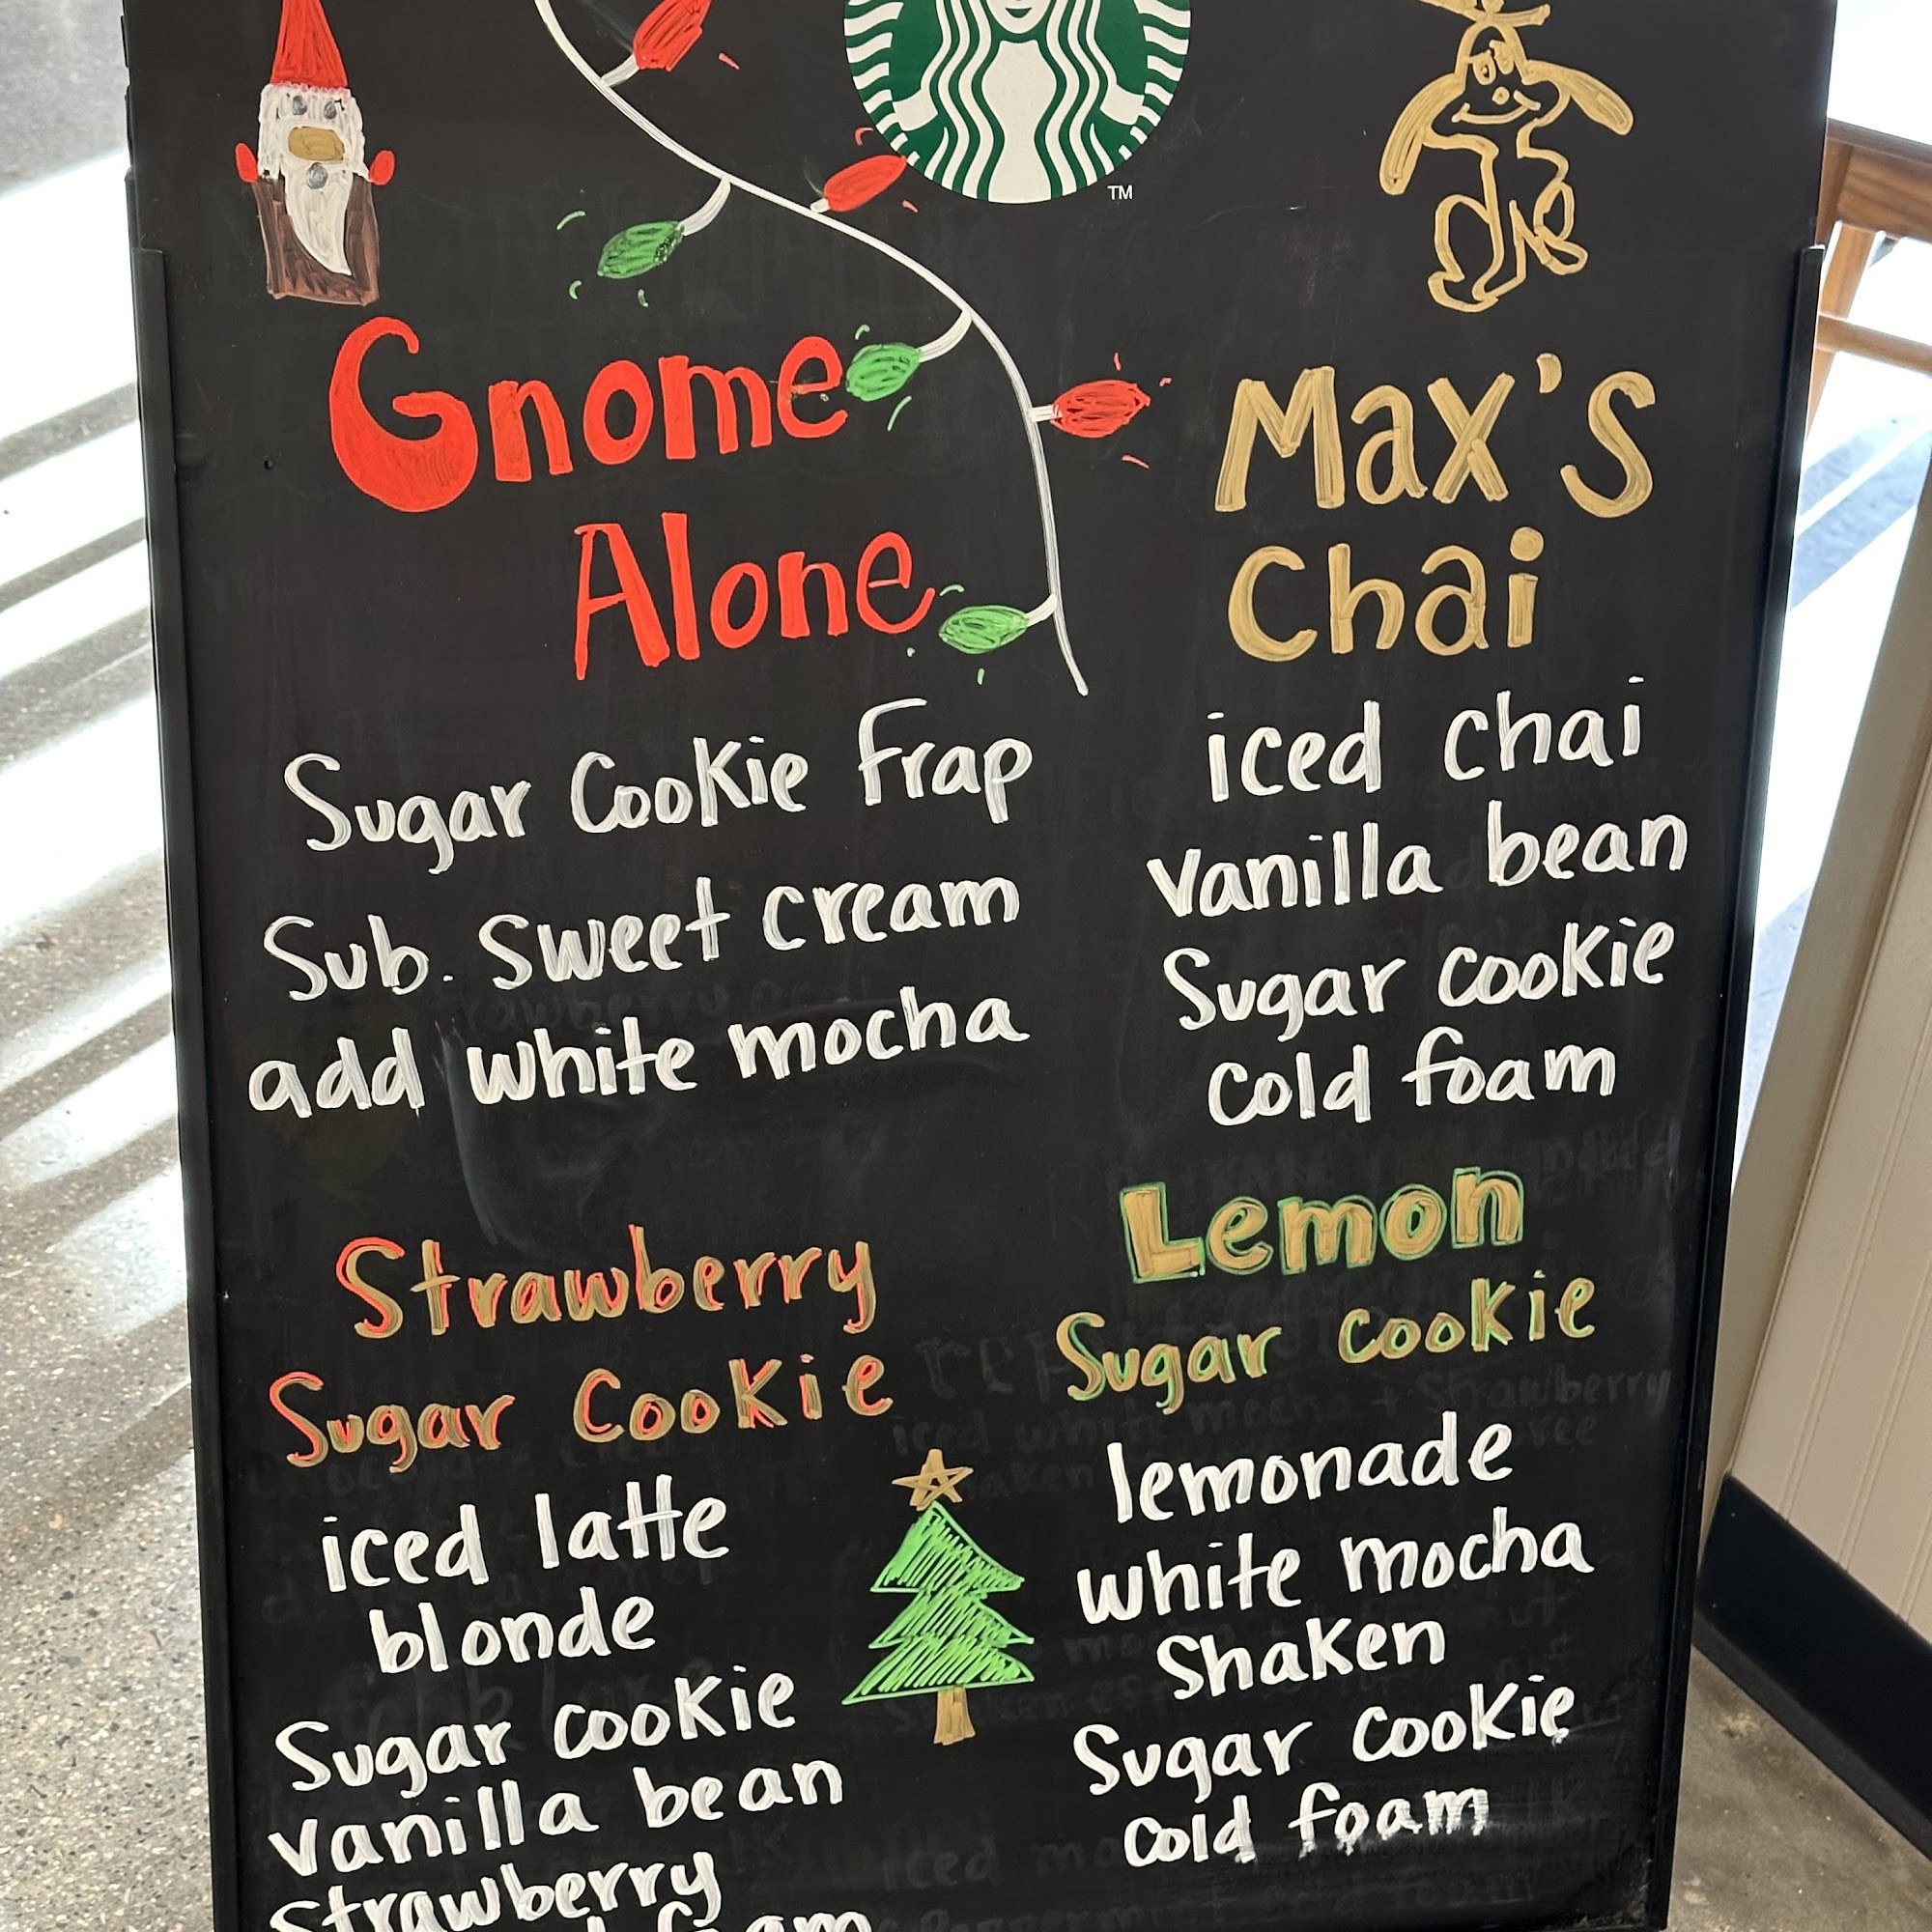 TM
Gnome
Alone
Sugar Cookie Frap
Sub. Sweet cream
add white mocha
Max's
Chai
iced chai
vanilla bean
Sugar cookie
cold foam
Strawberry
Sugar Cookie
iced latte
blonde
Sugar cookie
vanilla bean
Strawberry
foam
Lemon
Sugar cookie
lemonade
white mocha
Shaken
Sugar cookie
cold foam